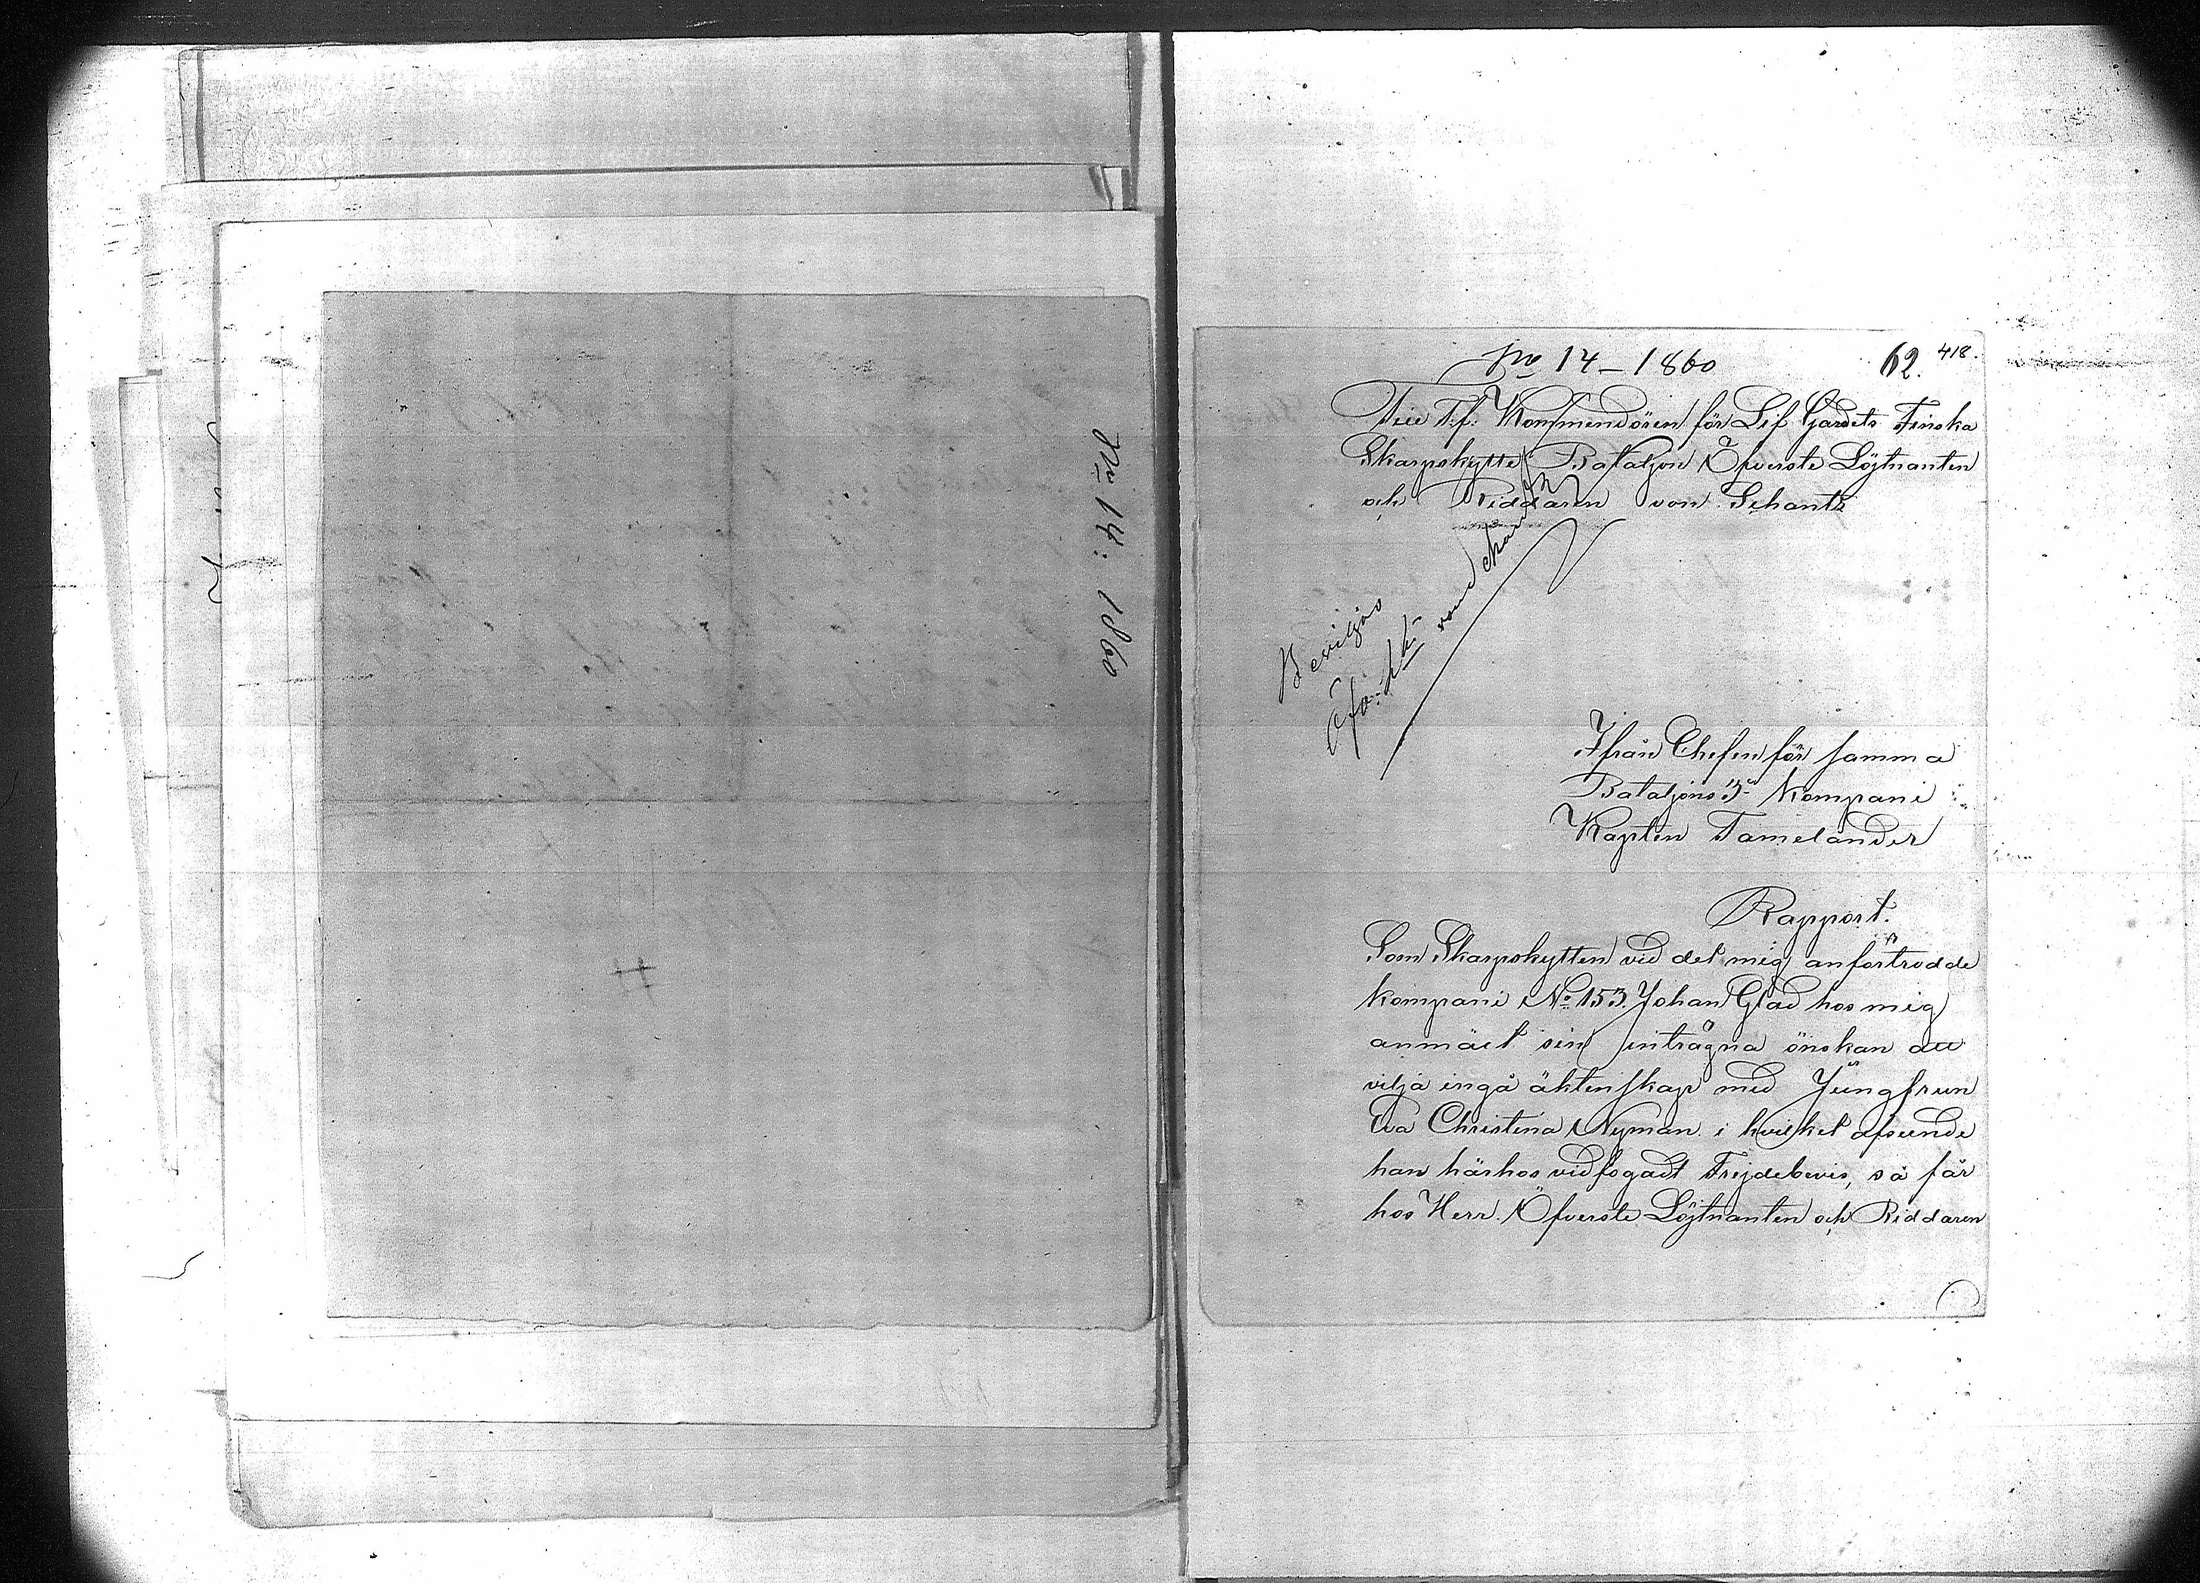 No 14: 1860
No 14 – 1860
62. 418.
Till T.f. Kommendören för Lif Gardets Finska
Skarpskytte Bataljon Öfverste Löjtnanten
och Riddaren von Schantz
Beviljas
Öfv: Ltt: von Schantz
Ifrån Chefen för samma
Bataljons 3e Kompani
Kapten Tamelander
Rapport.
Som Skarpskytten vid det mig anförtrodde
Kompani No 153. Johan Glad hos mig
anmält sin intrågna önskan att
vilja ingå äktenskap med Jungfrun
Eva Christina Nyman i hvilket afseende
han härhos vidfogadt Frejdebevis, så får
hos Herr Öfverste Löjtnanten och Riddaren